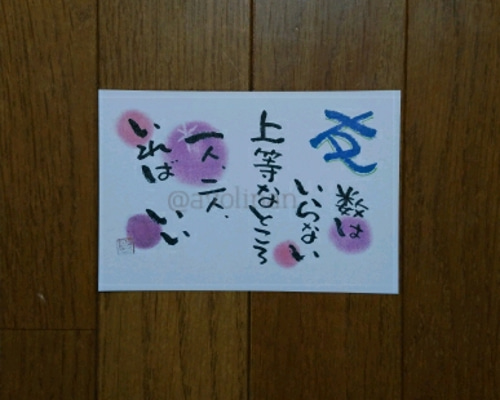 友
数は
いらない
上等なところ
一人、二人、
いれば
いい